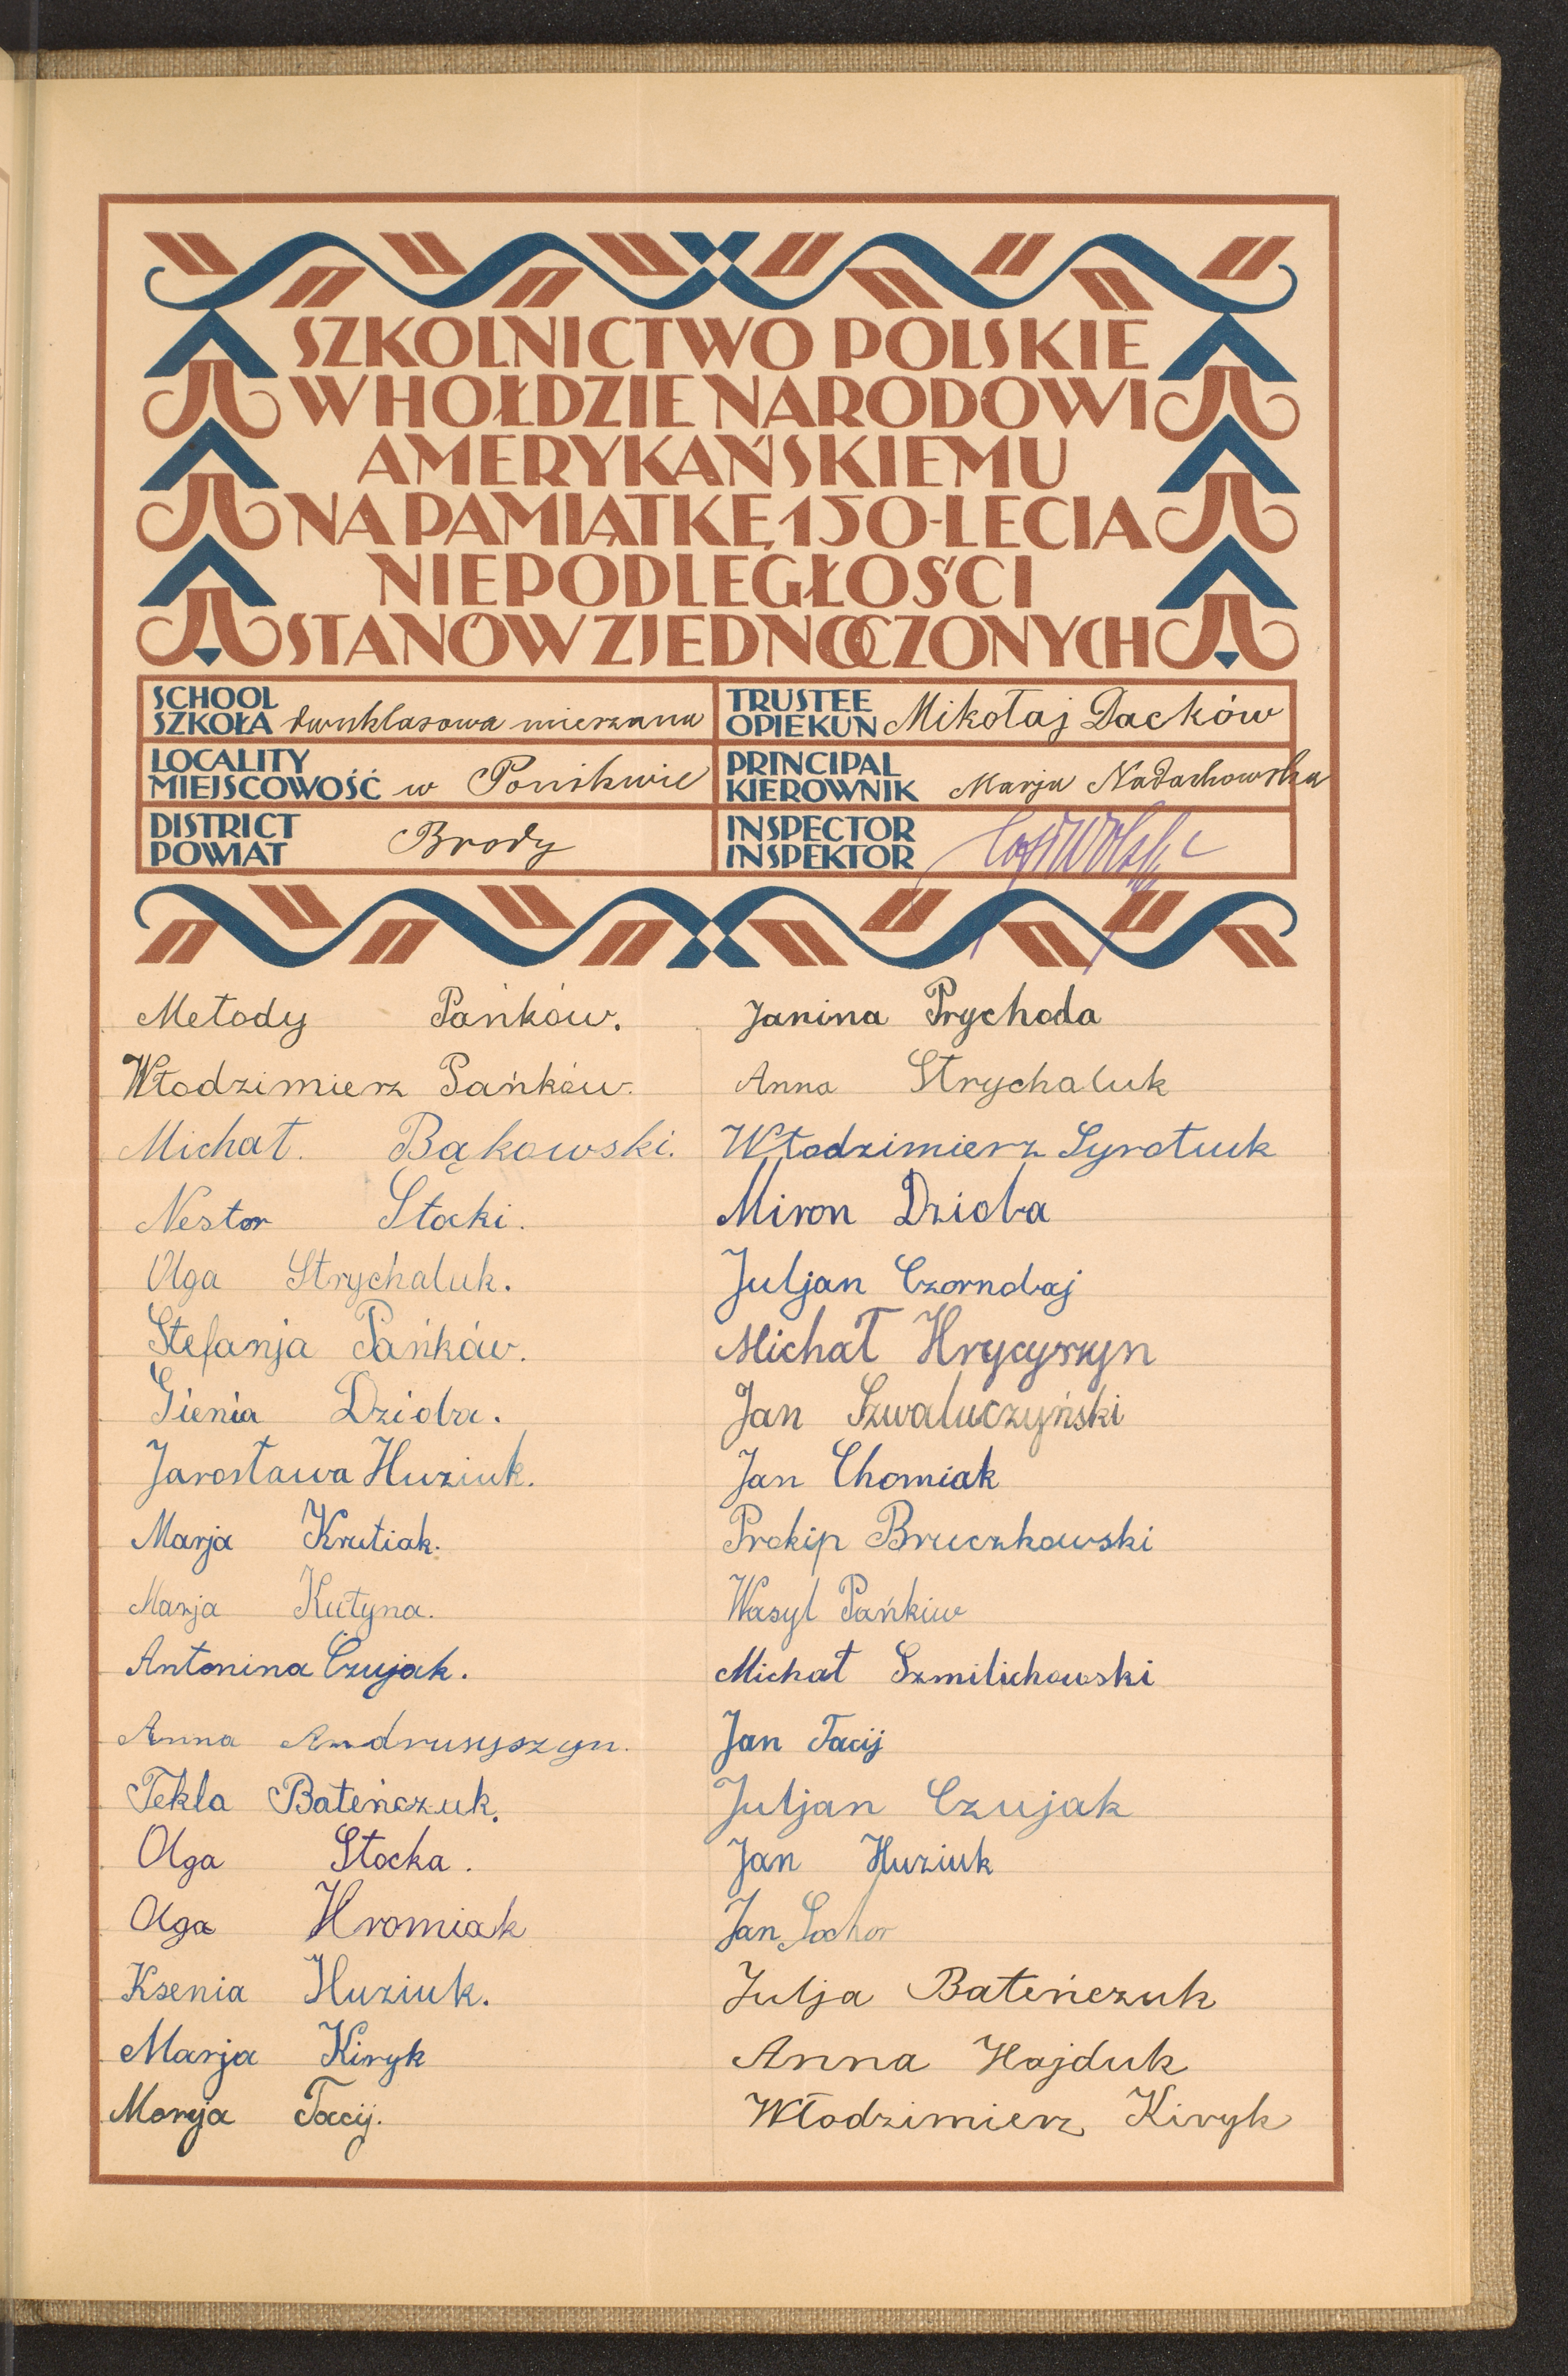 SZKOLNICTWO POLSKIE
W HOŁDZIE NARODOWI
AMERYKAŃSKIEMU
NA PAMIĄTKĘ 150-LECIA
NIEPODLEGŁOŚCI
STANÓW ZJEDNOCZONYCH
SCHOOL
SZKOŁA dwuklasowa mieszana
TRUSTEE
OPIEKUN Mikołaj Dacków
LOCALITY
MIEJSCOWOŚĆ w Ponikwie
PRINCIPAL
KIEROWNIK Marja Nadachowska
DISTRICT
POWIAT Brody
INSPECTOR
INSPEKTOR
Metody Pańków.
Włodzimierz Pańków.
Michał. Bąkowski.
Nestor Stocki.
Olga Strychaluk.
Stefanja Pańków.
Gienia Dzioba.
Jarosława Huziuk.
Marja Krutiak.
Marja Kutyna.
Antonina Czujak.
Anna Andrusyszyn.
Tekla Bateńczuk.
Olga Stocka.
Olga Hromiak
Ksenia Huziuk.
Marja Kiryk
Marja Tacij.
Janina Prychoda
Anna Strychaluk
Włodzimierz Syrotiuk
Miron Dzioba
Juljan Czornobaj
Michał Hrycyszyn
Jan Szwaluczyński
Jan Chomiak
Prokip Bruczkowski
Wasyl Pańkiw
Michał Szmilichowski
Jan Tacij
Juljan Czujak
Jan Huziuk
Jan Sochor
Julja Bateńczuk
Anna Hajduk
Włodzimierz Kiryk